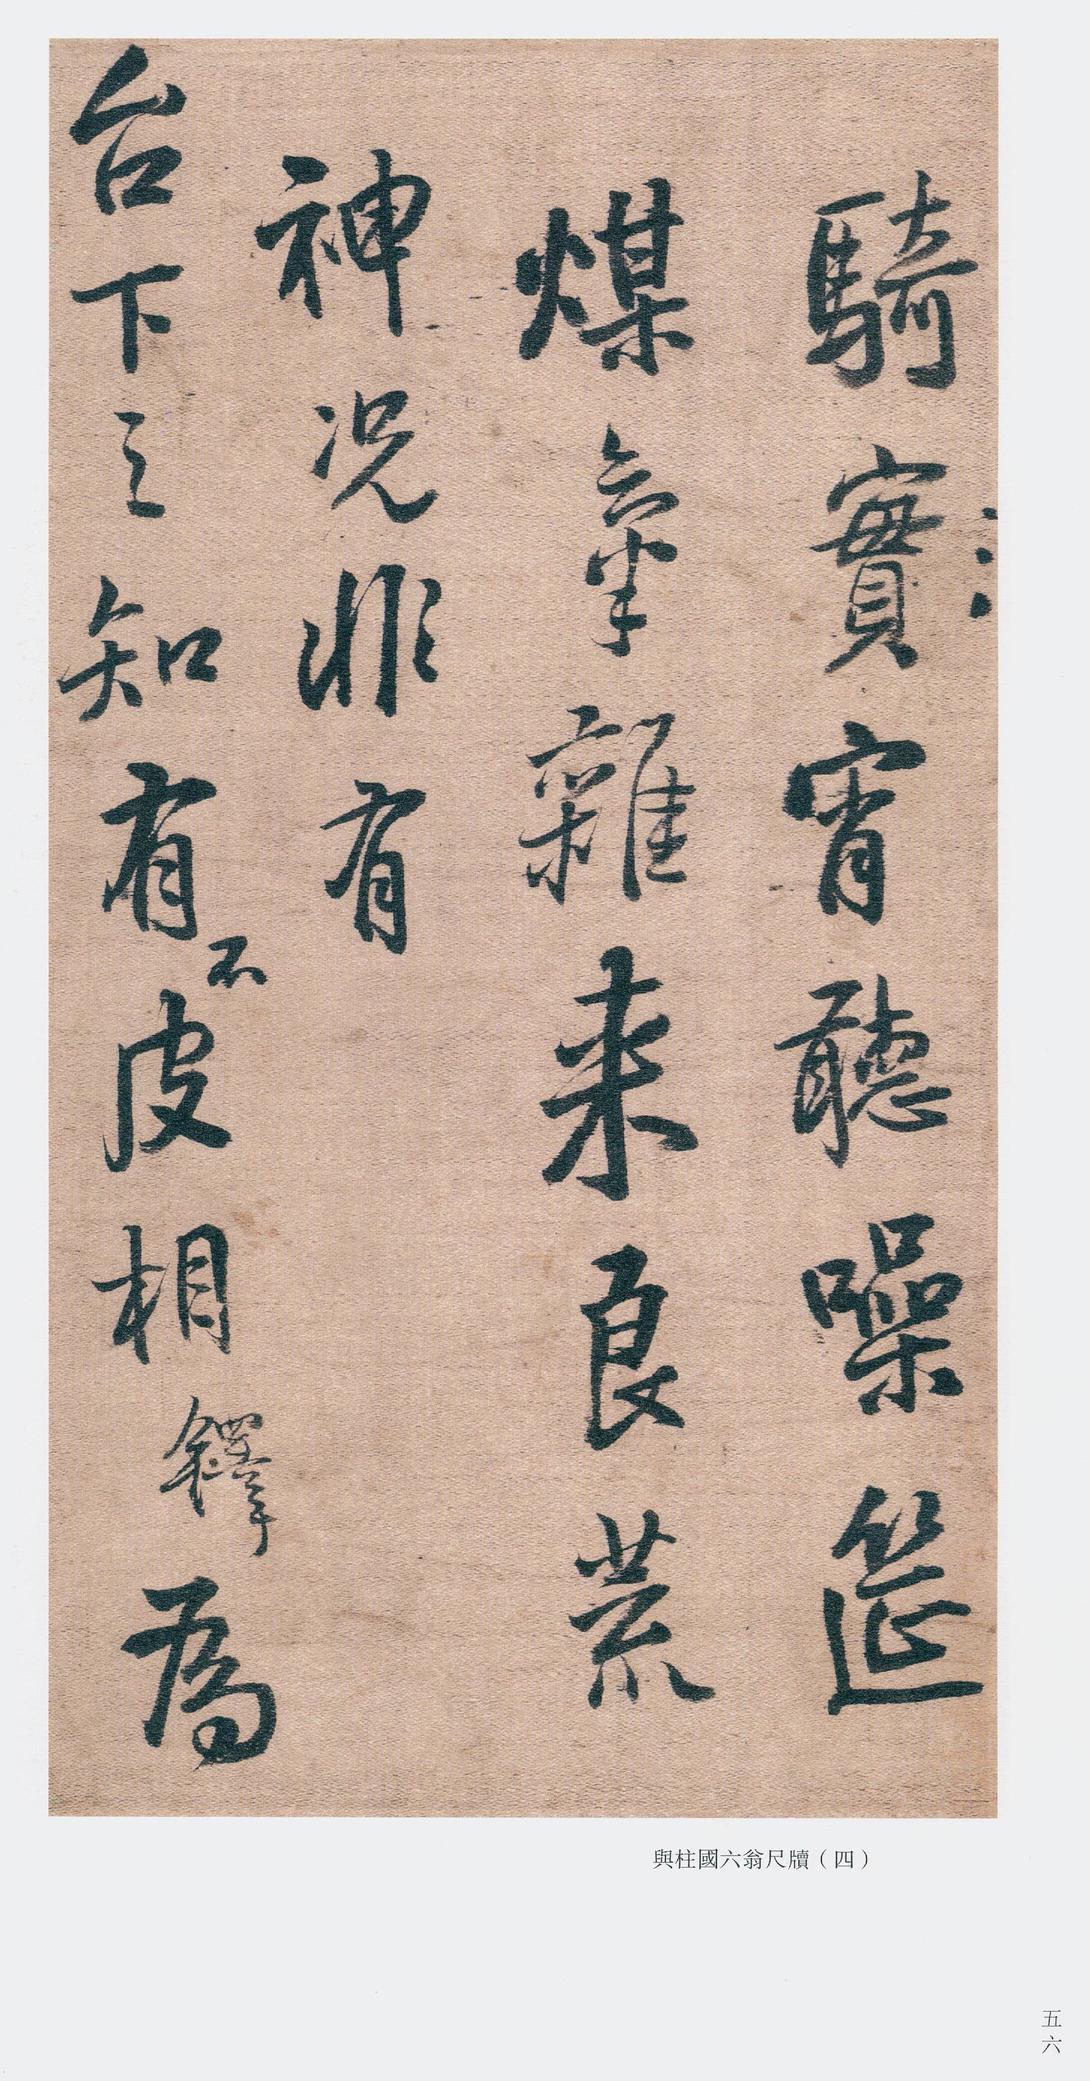 騎實宵聽噪筵
煤氣雜来良荒
神況非有
台下之知有不皮相鐸為
與柱國六翁尺牘（四）
五六